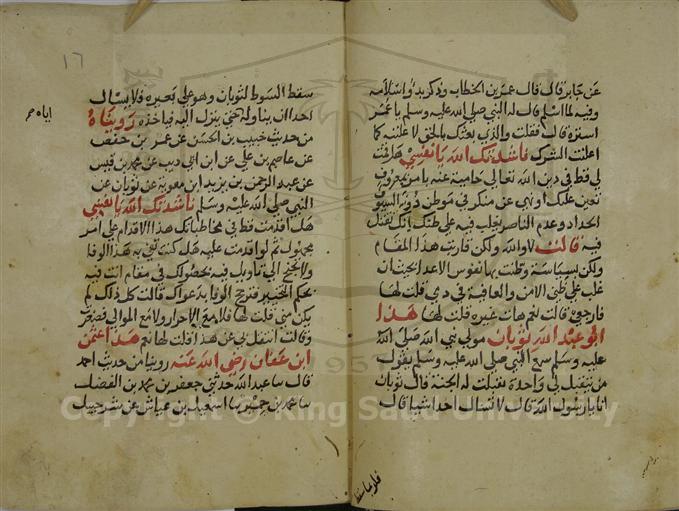 عن جابر قال قال عمر بن الخطاب وذكر بدو اسلامه
وفيه لما اسلم قال له النبي صلى الله عليه وسلم يا عمر
استره قال فقلت والذي بعثك بالحق لاعلننه كما
اعلنت الشرك ناشدتك الله يا نفسي هل قمت
لي قط في دين الله تعالى حامية عنه بامر بمعروف
تعين عليك او نهي عن منكر في موطن دونه السيوف
الحداد وعدم الناصر يغلب فيه على ظنك انك تقتل
فيه قالت لا والله ولكن قاربت هذا المقام
ولكن بسياسة وظنت بها نفوس الاعداء بحيث ان
غلب على ظني الامن والعافية في دمي قلت لها
فارجعي قالت نعم هات غيره قلت لها هذا
ابو عبد الله ثوبان مولى نبي الله صلى الله
عليه وسلم سمع النبي صلى الله عليه وسلم يقول
من تتقبل لي واحدة تقبلت له الجنة قال ثوبان
انا يا رسول الله قال لا تسال احدا شيا قال
فلربما سقط
١٦
سقط السوط لثوبان وهو على بعيره فلا يسال
احدا ان يناوله حتى ينزل اليه فياخذه رويناه
اياه م
من حديث خبيب بن الحسن عن عمر بن حفص
عن عاصم بن علي عن ابن ابي ذيب عن محمد بن قيس
عن عبد الرحمن بن يزيد ابن معوية عن ثوبان عن
النبي صلى الله عليه وسلم ناشدتك الله يا نفسي
هل اقدمت قط في مخاطباتك هذا الاقدام على امر
مجهول ثم لو اقدمت عليه هل كنت تفي به هذا الوفا
ولا تجنح الى تاويل فيه بحصولك في مقام انت فيه
بحكم التخيير فترجح الوفا بدعواك قالت كل ذلك لم
يكن مني قلت لها فلا مع الاحرار ولا مع الموالي
وقالت انتقل بي عن هذا قلت لها نعم هذا عثمن
ابن عفان رضى الله عنه روينا من حديث احمد
قال سا عبد الله حدثني جعفر بن محمد بن الفضل
سا محمد بن حمير سا اسمعيل بن عياش عن شرحبيل
Copyright © King Saud University
1957